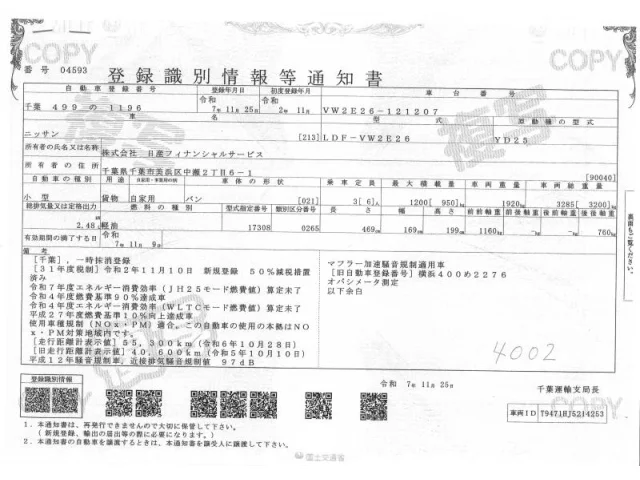 COPY
COPY
番号 04593
登録識別情報等通知書
自動車登録番号
登録年月日
初度登録年月
車台番号
千葉 499 の 1196
令和
7年 11月 25日
令和
2年 11月
VW2E26-121207
車名
型式
原動機の型式
ニッサン
[213]
LDF-VW2E26
YD25
所有者の氏名又は名称
株式会社 日産フィナンシャルサービス
所有者の住所
千葉県千葉市美浜区中瀬2丁目6-1
[90040]
自動車の種別
用途
自家用・事業用の別
車体の形状
乗車定員
最大積載量
車両重量
車両総重量
小型
貨物
自家用
バン
[021]
3[ 6]人
1200[ 950]kg
1920kg
3285[ 3200]kg
総排気量又は定格出力
燃料の種別
型式指定番号
類別区分番号
長さ
幅
高さ
前前軸重
前後軸重
後前軸重
後後軸重
2.48
軽油
17308
0265
469cm
169cm
199cm
1160kg
-kg
-kg
760kg
有効期間の満了する日
令和
7年 11月 9日
備考
[千葉],一時抹消登録
[31年度税制]令和2年11月10日 新規登録 50%減税措置
済み
令和7年度エネルギー消費効率(JH25モード燃費値)算定未了
令和4年度燃費基準90%達成車
令和4年度エネルギー消費効率(WLTCモード燃費値)算定未了
平成27年度燃費基準10%向上達成車
使用車種規制(NOx・PM)適合。この自動車の使用の本拠はNO
x・PM対策地域内です。
[走行距離計表示値]55,300km(令和6年10月28日)
[旧走行距離計表示値]40,600km(令和5年10月10日)
平成12年騒音規制車,近接排気騒音規制値 97dB
マフラー加速騒音規制適用車
[旧自動車登録番号]横浜400め2276
オパシメータ測定
以下余白
4002
裏面もご覧ください。
登録識別情報
令和 7年 11月 25日
千葉運輸支局長
車両ID T9471HJ5214253
1.本通知書は、再発行できませんので大切に保管して下さい。
(新規登録、輸出の届出等の際に必要になります。)
2.本通知書の自動車を譲渡するときは、本通知書を譲受人に譲渡して下さい。
国土交通省
COPY
COPY
複写
複写